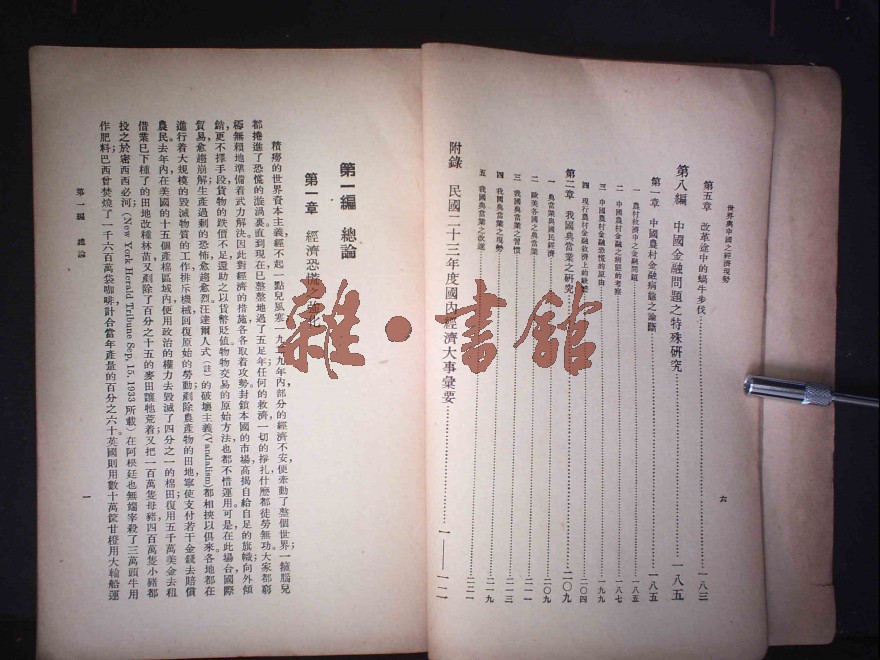 世界與中國之經濟現勢
六
第五章　改革途中的蝸牛步伐…………一八三
第八編　中國金融問題之特殊研究…………一八五
第一章　中國農村金融病態之論斷…………一八五
一　農村救濟中之金融問題…………一八五
二　中國農村金融之病態的考察…………一八七
三　中國農村金融恐慌的原由…………一九九
四　現行農村金融救濟上的缺憾…………二〇四
第二章　我國典當業之研究…………二〇九
一　典當業與國民經濟…………二〇九
二　歐美各國之典當業…………二一一
三　我國典當業之習慣…………二一三
四　我國典當業之現勢…………二一九
五　我國典當業之改進…………二二一
附錄　民國二十三年度國內經濟大事彙要…………一——一二
第一編　總論
第一章　經濟恐慌之強化
積癆的世界資本主義，經不起一點兒風寒，一九二九年內，部分的經濟不安，便牽動了整個世界，一攏腦兒
都捲進了恐慌的漩渦裏，直到現在，已整整地過了五足年；任何的救濟，一切的掙扎，什麼都徒勞無功，大家都窮
極無賴地準備着武力解決。因此對經濟的措施，各各取着攻勢，封鎖本國的市場，高揭自給自足的旗幟；向外傾
銷，更不擇手段；貨物的跌價不足，還助之以貨幣貶值。物物交易的原始方法，也都不惜運用。可是在此場合，國際
貿易，愈趨崩解，生產過剩的恐怖，愈趨愈烈。汪達爾人式（註）的破壞主義(Vandalism)，都相挾以俱來。各地都在
進行着大規模的毀滅物質的工作，排斥機械，回復原始的勞動，剷除農產物的田地，寧使支付若干金錢去賠償
農民。去年內，在美國的十五個產棉區域內，使用政治的權力去毀滅了四分之一的棉田；復用五千萬美金去租
借業已下種了的田地，改種林苗；又剷除了百分之十五的麥田，讓牠荒着；又把一百萬隻母豬，四百萬隻小豬，都
投之於密西西必河；(New York Herald Tribune Sep, 15, 1933 所載) 在阿根廷也無端宰殺了三萬頭牛，用
作肥料；巴西曾焚燒了一千六百萬袋咖啡，計合當年產量的百分之六十。英國則用數十萬筐廿橙，用大輪船運
第一編　總論
一
雜·書館